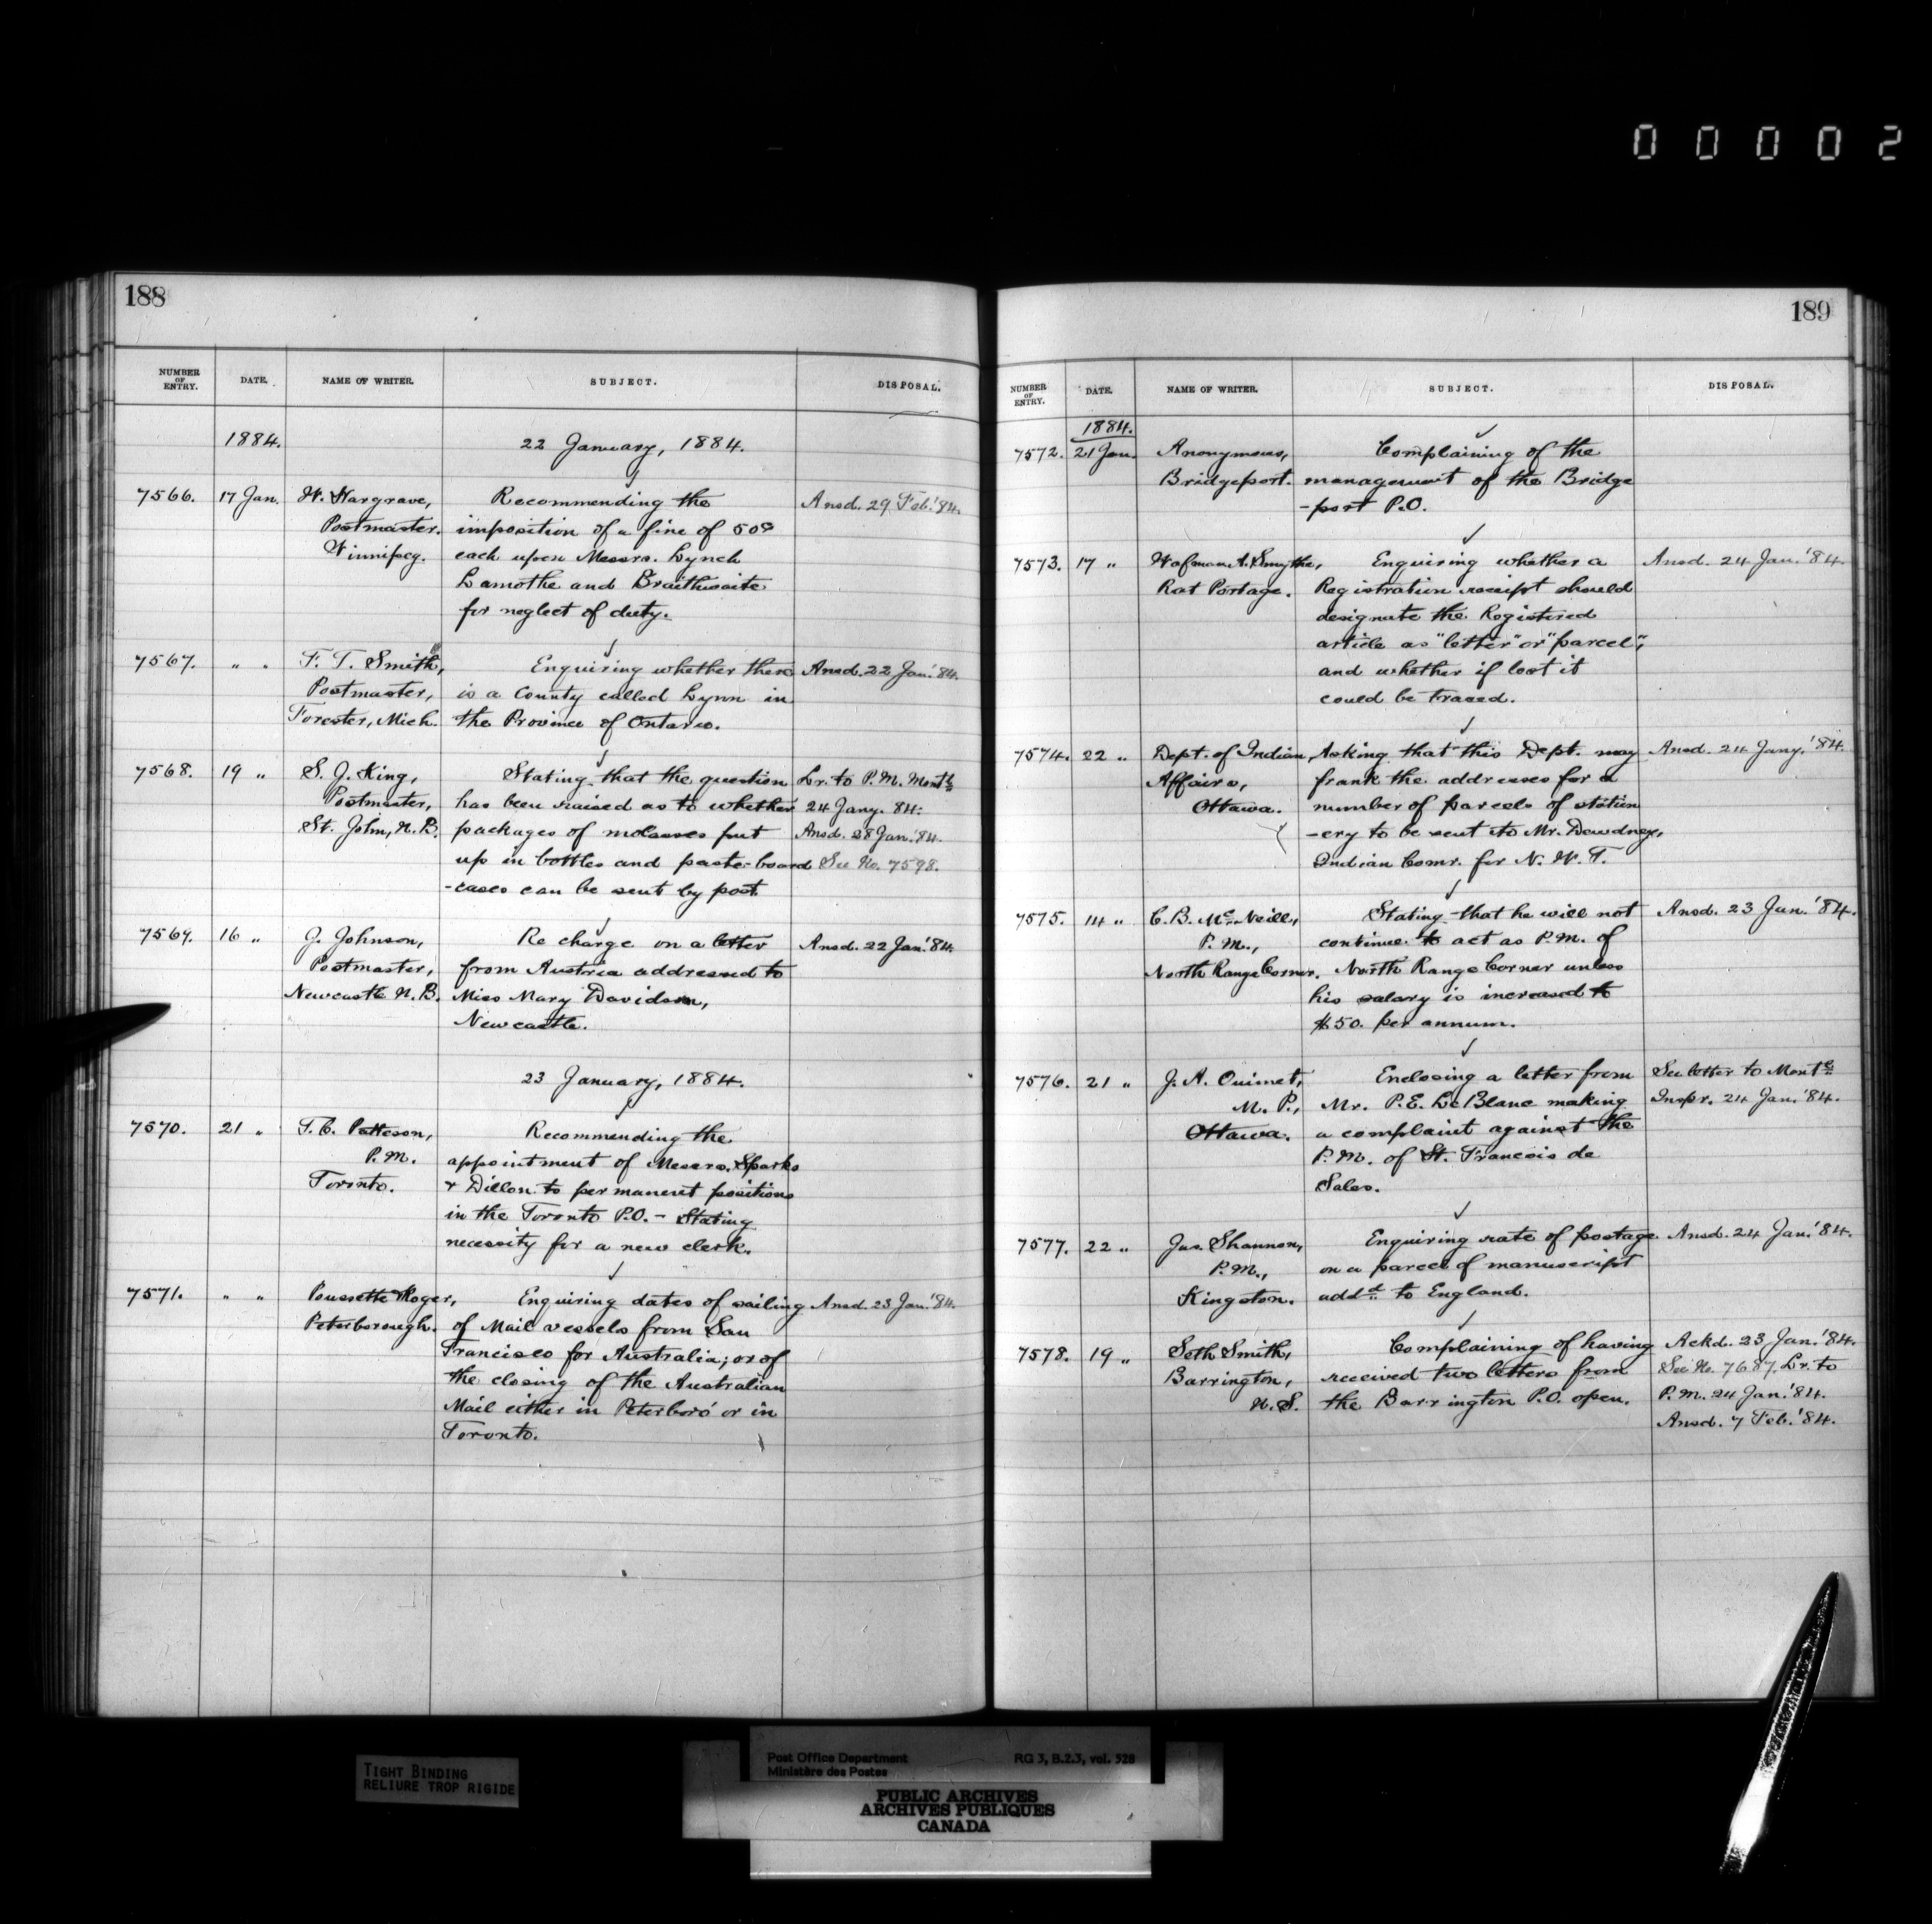 00002
188
NUMBER OF ENTRY. DATE. NAME OF WRITER. SUBJECT. DISPOSAL.
1884. 22 January, 1884.
7566. 17 Jan. W. Hargrave, Recommending the Ansd. 29 Feb.'84.
Postmaster. imposition of a fine of 50c
Winnipeg. each upon Messrs. Lynch
Lamothe and Braithwaite
for neglect of duty.
7567. " " F. T. Smith, Enquiring whether there Ansd. 22 Jan.'84.
Postmaster, is a County called Lynn in
Forester, Mich. the Province of Ontario.
7568. 19 " S. J. King, Stating that the question Lr. to P. M. Montl
Postmaster, has been raised as to whether 24 Jany. 84.
St. John, N.B. packages of molasses put Ansd. 28 Jan.'84.
up in bottles and pasteboard See No. 7598.
-cases can be sent by post.
7569. 16 " J. Johnson, Re charge on a letter Ansd. 22 Jan.'84.
Postmaster, from Austria addressed to
Newcastle N.B. Miss Mary Davidson,
Newcastle.
23 January, 1884.
7570. 21 " T. C. Patteson, Recommending the
P.M. appointment of Messrs. Sparks
Toronto. & Dillon to permanent positions
in the Toronto P.O. - Stating
necessity for a new clerk.
7571. " " Poussette Roger, Enquiring dates of sailing Ansd. 23 Jan.'84.
Peterborough. of Mail vessels from San
Francisco for Australia; or of
the closing of the Australian
Mail either in Peterboro' or in
Toronto.
189
NUMBER OF ENTRY. DATE. NAME OF WRITER. SUBJECT. DISPOSAL.
1884.
7572. 21 Jan. Anonymous, Complaining of the
Bridgeport. management of the Bridge
-port P.O.
7573. 17 " A. Smythe, Enquiring whether a Ansd. 24 Jan.'84.
Rat Portage. Registration receipt should
designate the Registered
article as "letter" or "parcel",
and whether if lost it
could be traced.
7574. 22 " Dept. of Indian Asking that this Dept. may Ansd. 24 Jany.'84.
Affairs, frank the addresses for a
Ottawa. number of parcels of station
-ery to be sent to Mr. Dewdney,
Indian Comr. for N. W. T.
7575. 14 " C. B. McNeill, Stating that he will not Ansd. 23 Jan.'84.
P.M., continue to act as P.M. of
North Range Corner. North Range Corner unless
his salary is increased to
$50. per annum.
7576. 21 " J. A. Ouimet, Enclosing a letter from See letter to Montl
M.P., Mr. P.E. LeBlanc making Inspr. 24 Jan.'84.
Ottawa. a complaint against the
P.M. of St. Francois de
Sales.
7577. 22 " Jas. Shannon, Enquiring rate of postage Ansd. 24 Jan.'84.
P.M., on a parcel of manuscript
Kingston. addd to England.
7578. 19 " Seth Smith, Complaining of having Ackd. 23 Jan.'84.
Barrington, received two letters from See No. 7687. Lr. to
N.S. the Barrington P.O. open. P.M. 24 Jan.'84.
Ansd. 7 Feb.'84.
TIGHT BINDING
RELIURE TROP RIGIDE
Post Office Department RG 3, B.2.3, vol. 528
Ministère des Postes
PUBLIC ARCHIVES
ARCHIVES PUBLIQUES
CANADA